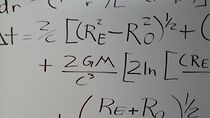 dr
Δt = 2/c [(R_E² - R_O²)^1/2 + (
+ 2GM/c³ [2ln [(R_E
(R_E + R_O)^1/2